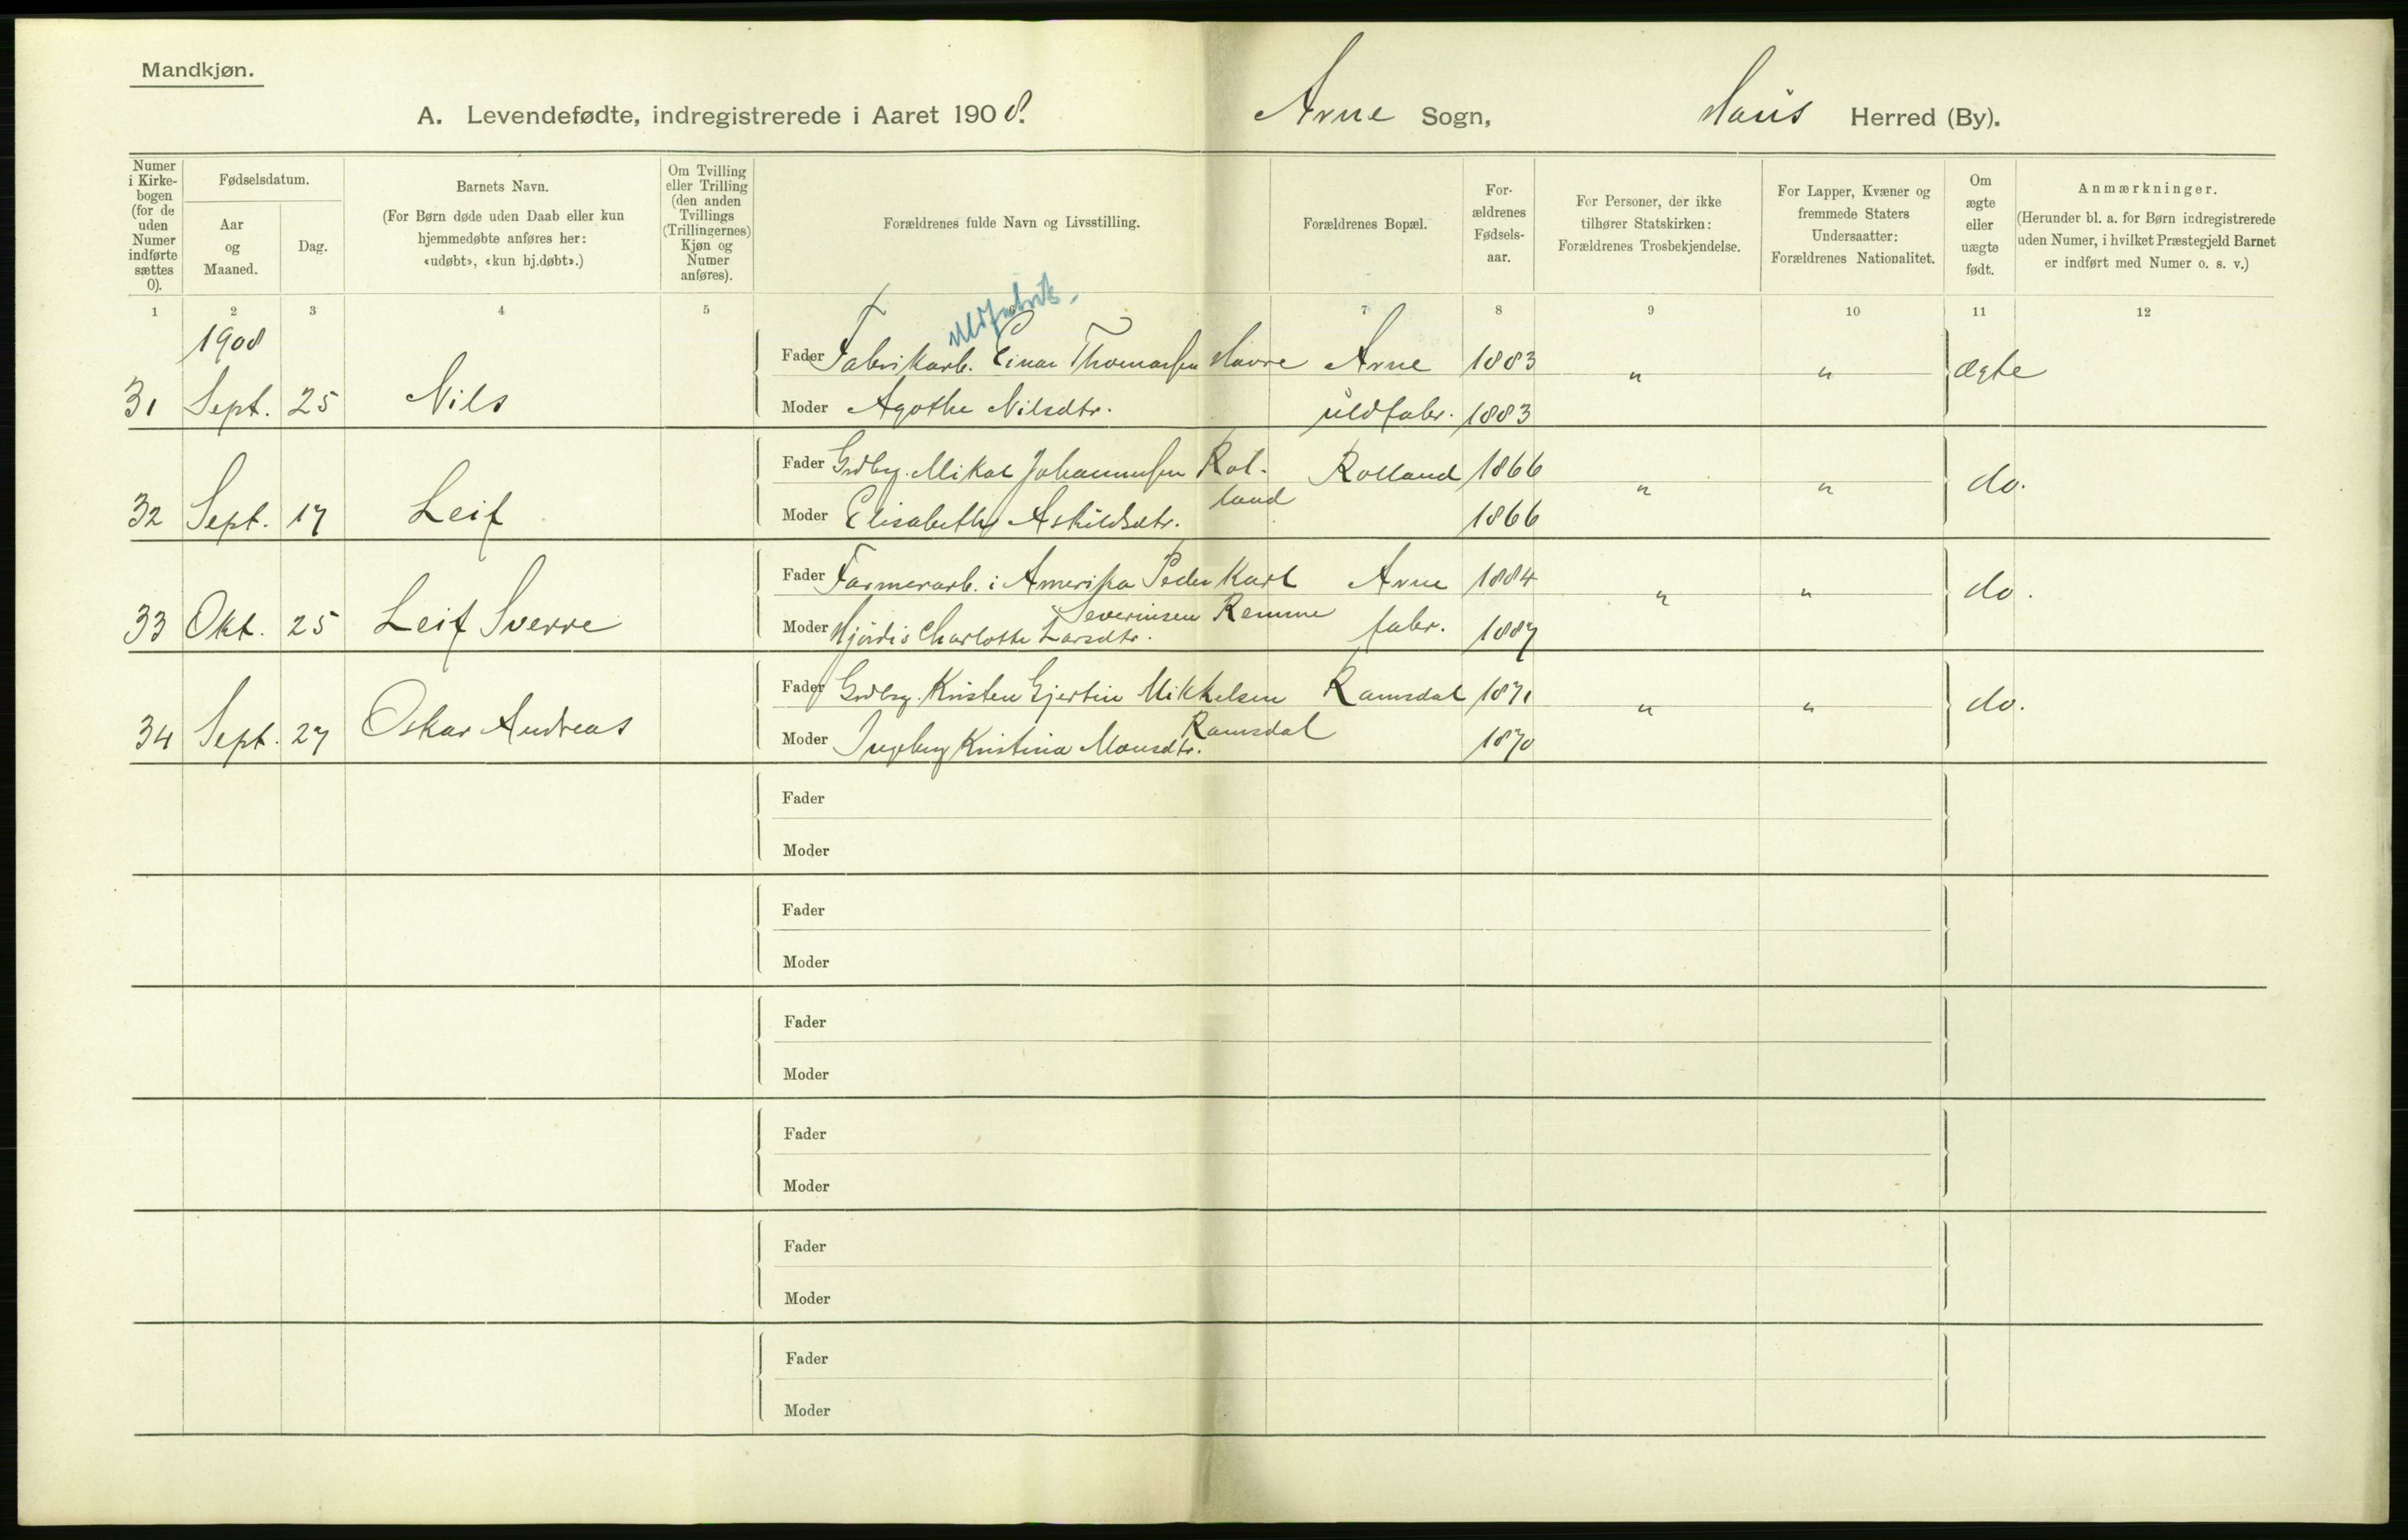 Mandkjøn.
A. Levendefødte, indregistrerede i Aaret 1908. Arne Sogn, Haus Herred (By).
Numer i Kirkebogen (for de uden Numer indførte sættes 0).
Fødselsdatum.
Aar og Maaned.
Dag.
Barnets Navn.
(For Børn døde uden Daab eller kun hjemmedøbte anføres her: «udøbt», «kun hj.døbt».)
Om Tvilling eller Trilling (den anden Tvillings (Trillingernes) Kjøn og Numer anføres).
Forældrenes fulde Navn og Livsstilling.
Forældrenes Bopæl.
Forældrenes Fødselsaar.
For Personer, der ikke tilhører Statskirken: Forældrenes Trosbekjendelse.
For Lapper, Kvæner og fremmede Staters Undersaatter: Forældrenes Nationalitet.
Om ægte eller uægte født.
Anmærkninger.
(Herunder bl. a. for Børn indregistrerede uden Numer, i hvilket Præstegjeld Barnet er indført med Numer o. s. v.)
1 2 3 4 5 7 8 9 10 11 12
1908
Uldfabrik.
Fader Fabrikarb. Einar Thomassen Havre Arne 1883 " " ægte
31 Sept. 25 Nils
Moder Agathe Nilsdtr. uldfabr. 1883
Fader Grdbr. Mikal Johannessen Rol- Rolland 1866 " " do.
land
32 Sept. 17 Leif
Moder Elisabeth Askildsdtr. 1866
Fader Farmerarb. i Amerika Peder Karl Arne 1884 " " do.
Severinsen Remme
33 Okt. 25 Leif Sverre
Moder Hjørdis Charlotte Larsdtr. fabr. 1887
Fader Grdbr. Kristen Gjertin Mikkelsen Ramsdal 1871 " " do.
Ramsdal
34 Sept. 27 Oskar Andreas
Moder Ingeborg Kristina Monsdtr. 1870
Fader
Moder
Fader
Moder
Fader
Moder
Fader
Moder
Fader
Moder
Fader
Moder